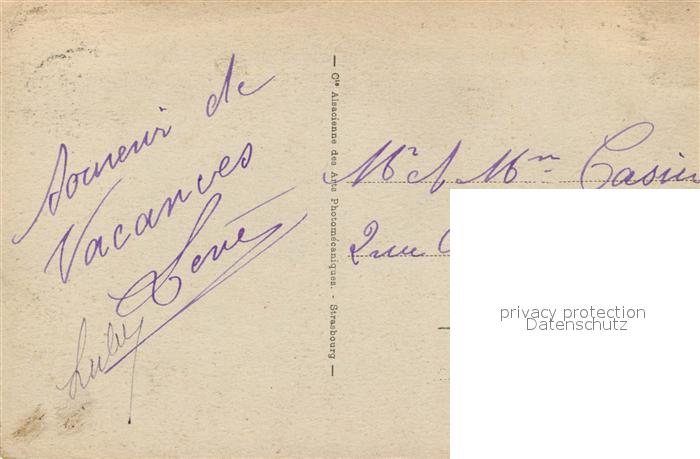 Souvenir de
Vacances
— Cie Alsacienne des Arts Photomécaniques. - Strasbourg —
Mr & Mme
2 rue
privacy protection
Datenschutz